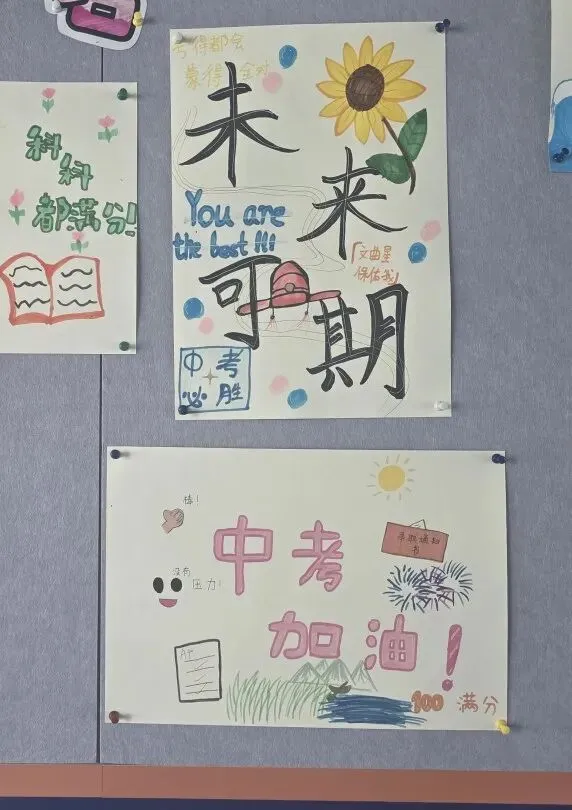 科
科
都满分!
考得都会
蒙得全对
未
来
You are
the best !!!
「文曲星
保佑我」
可
期
中考
必胜
棒!
中考
录取通知
书
没有
压力!
加油!
A+
100 满分